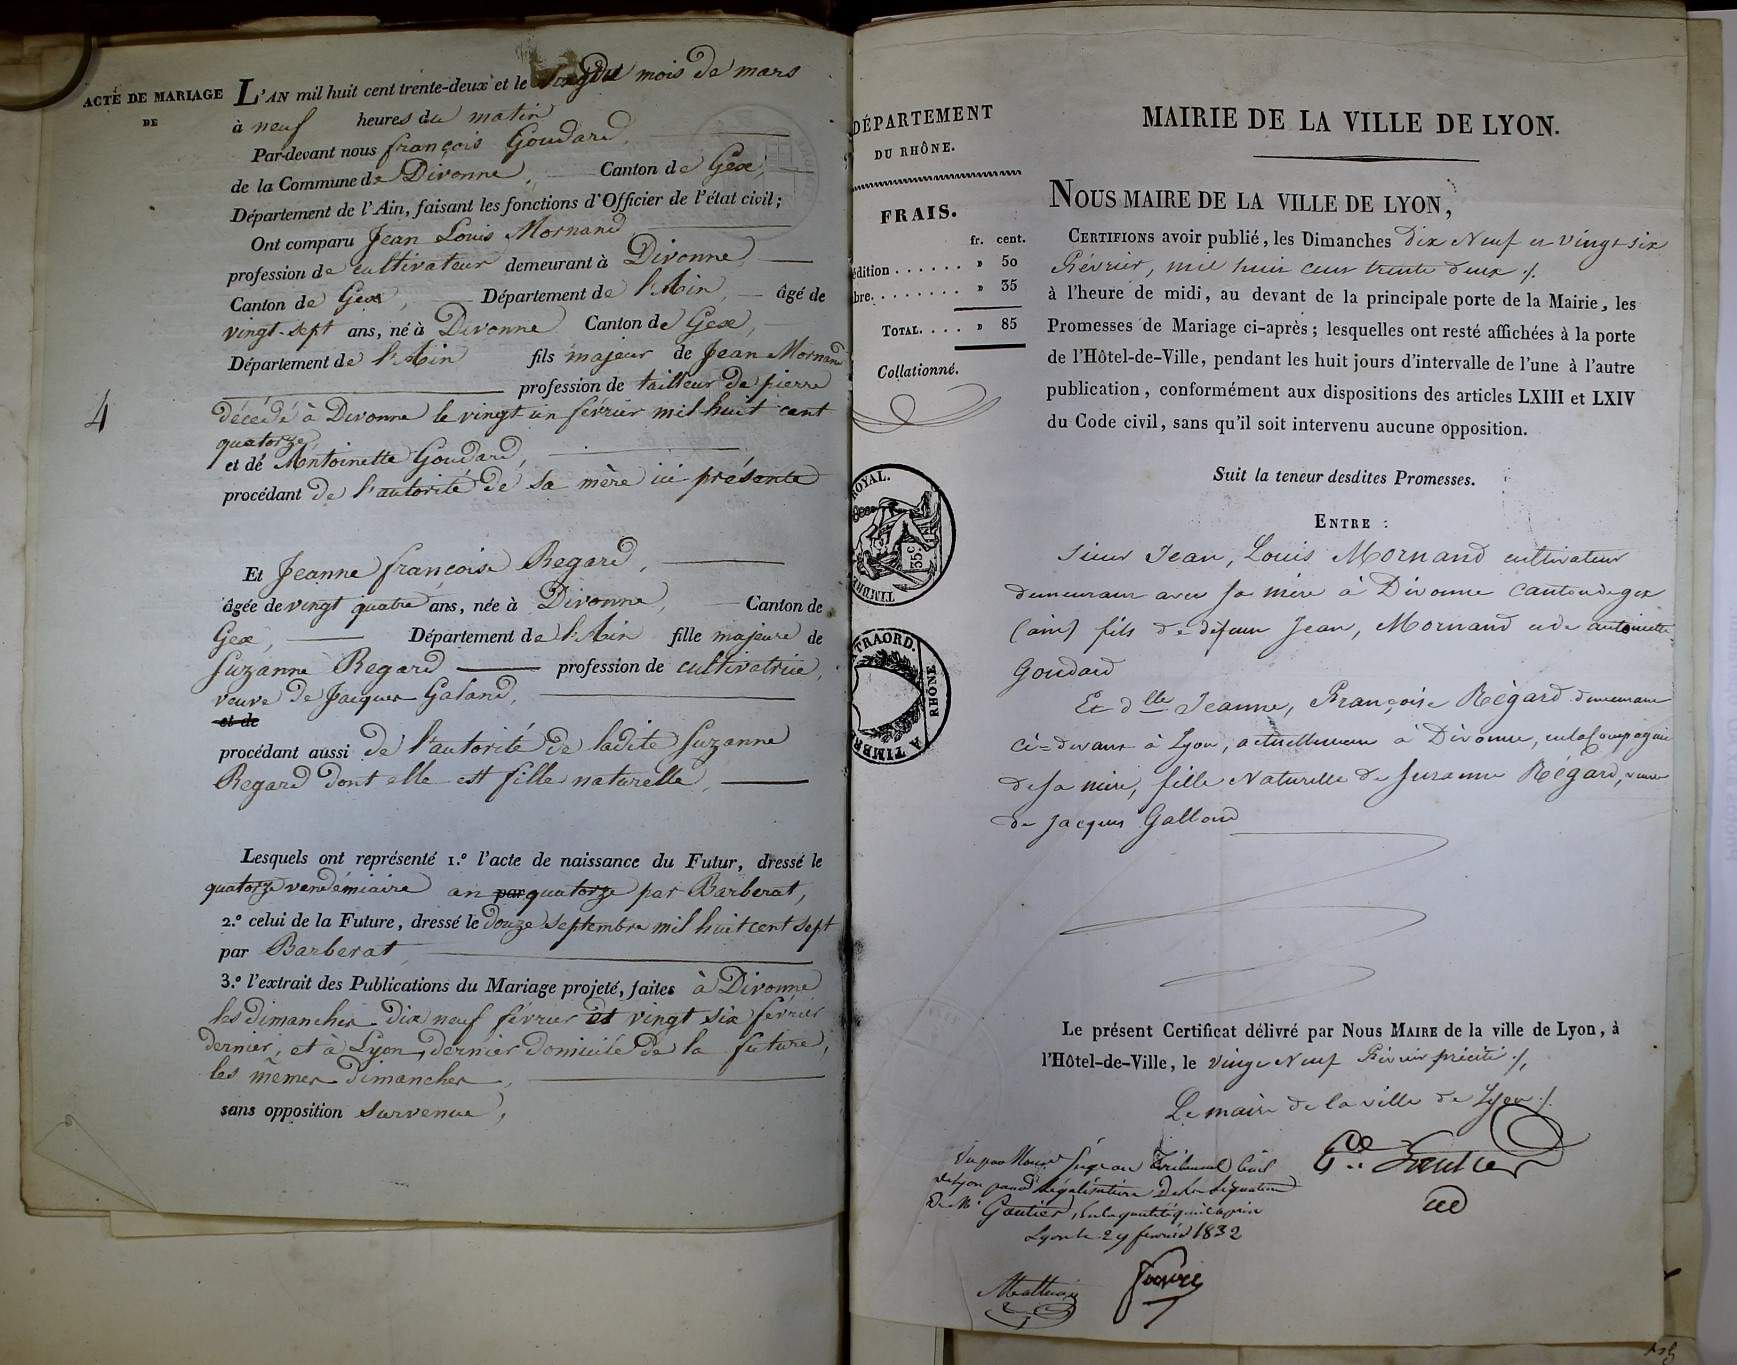 ACTE DE MARIAGE
DE
L'AN mil huit cent trente-deux et le du mois de mars
à neuf heures du matin
Par-devant nous françois Goudard,
de la Commune de Divonne, Canton de Gex,
Département de l'Ain, faisant les fonctions d'Officier de l'état civil;
Ont comparu Jean Louis Mornand
profession de cultivateur demeurant à Divonne,
Canton de Gex, Département de l'Ain, âgé de
vingt-sept ans, né à Divonne Canton de Gex,
Département de l'Ain fils majeur de Jean Mornand
profession de tailleur de pierre
décédé à Divonne le vingt-un février mil huit cent
quatorze,
et de Antoinette Goudard,
procédant de l'autorité de sa mère ici présente
4
Et Jeanne françoise Regard,
âgée de vingt quatre ans, née à Divonne, Canton de
Gex, Département de l'Ain fille majeure de
Suzanne Regard profession de cultivatrice,
veuve de Jacques Galand,
et de
procédant aussi de l'autorité de ladite Suzanne
Regard dont elle est fille naturelle,
Lesquels ont représenté 1.º l'acte de naissance du Futur, dressé le
quatorze vendémiaire an par quatorze par Barberat,
2.º celui de la Future, dressé le douze septembre mil huit cent sept
par Barberat,
3.º l'extrait des Publications du Mariage projeté, faites à Divonne
les dimanches dix neuf février et vingt six février
dernier, et à Lyon, dernier domicile de la future,
les mêmes dimanches,
sans opposition survenue,
DÉPARTEMENT
DU RHÔNE.
FRAIS.
fr. cent.
édition . . . . . . » 50
bre. . . . . . . . » 35
TOTAL. . . . » 85
Collationné.
ROYAL.
35c
TIMBRE
EXTRAORD.
RHÔNE
A TIMBRE
MAIRIE DE LA VILLE DE LYON.
NOUS MAIRE DE LA VILLE DE LYON,
CERTIFIONS avoir publié, les Dimanches dix Neuf et vingt six
Février, mil huit cent trente deux ./.
à l'heure de midi, au devant de la principale porte de la Mairie, les
Promesses de Mariage ci-après; lesquelles ont resté affichées à la porte
de l'Hôtel-de-Ville, pendant les huit jours d'intervalle de l'une à l'autre
publication, conformément aux dispositions des articles LXIII et LXIV
du Code civil, sans qu'il soit intervenu aucune opposition.
Suit la teneur desdites Promesses.
ENTRE :
Sieur Jean, Louis Mornand cultivateur
demeurant avec sa mère à Divonne canton de gex
(ain) fils de défunt Jean, Mornand et de antoinette
Goudard
Et dlle Jeanne, Françoise Régard demeurant
ci=devant à Lyon, actuellement à Divonne, en la Compagnie
de sa mère, fille Naturelle de Suzanne Régard, veuve
de Jacques Galland
Le présent Certificat délivré par Nous MAIRE de la ville de Lyon, à
l'Hôtel-de-Ville, le vingt Neuf Février précité ./.
Le maire de la ville de Lyon ./.
Vu par Nous Juge au Tribunal Civil
de Lyon pour légalisation de la Signature
de Mr Gautier, en la qualité qu'il a prise
Lyon le 29 février 1832